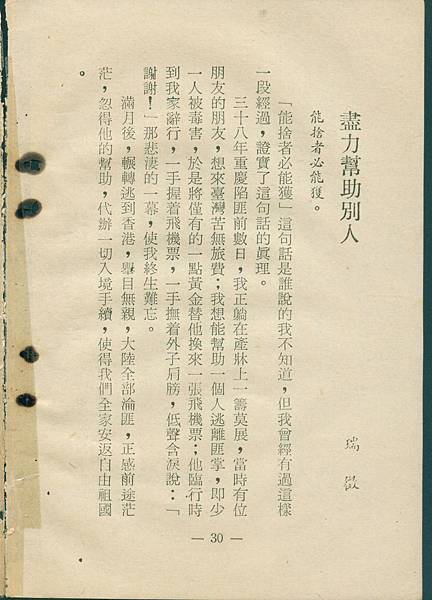 盡力幫助別人
能捨者必能獲。
瑞徵
「能捨者必能獲」這句話是誰說的我不知道，但我曾經有過這樣
一段經過，證實了這句話的眞理。
三十八年重慶陷匪前數日，我正躺在產牀上一籌莫展，當時有位
朋友的朋友，想來臺灣苦無旅費；我想能幫助一個人逃離匪掌，即少
一人被毒害，於是將僅有的一點黃金替他換來一張飛機票；他臨行時
到我家辭行，一手握着飛機票，一手撫着外子肩膀，低聲含淚說：「
謝謝！」那悲淒的一幕，使我終生難忘。
滿月後，輾轉逃到香港，舉目無親，大陸全部淪匪，正感前途茫
茫，忽得他的幫助，代辦一切入境手續，使得我們全家安返自由祖國
。
— 30 —